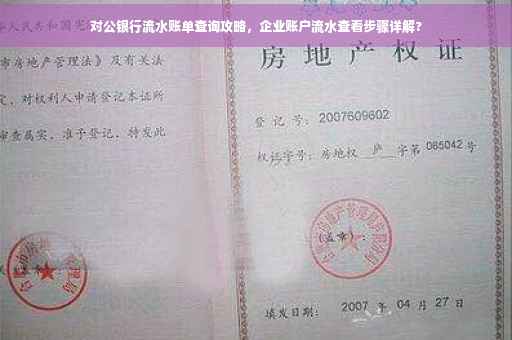 对公银行流水账单查询攻略，企业账户流水查看步骤详解？
人民共和国宪
市房地产管理法》及有关法
定，对权利人申请登记本证所
审查属实，准予登记，特发此
房地产权证
登记号：2007609602
权证字号：房地权 庐 字第 065042 号
(盖章)：
填发日期：2007 年 04 月 27 日